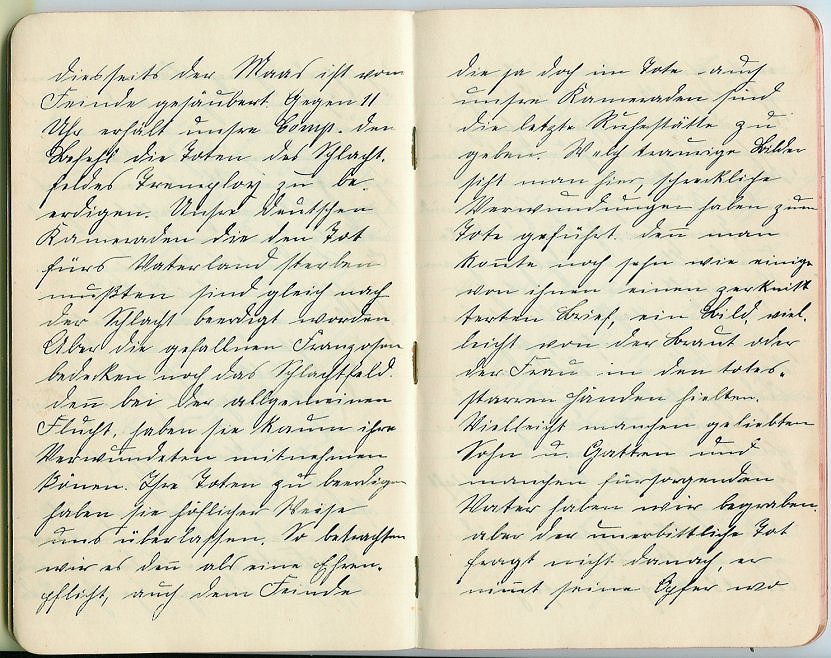 diesseits der Maas ist vom
Feinde gesäubert. Gegen 11
Uhr erhält unsre Comp. den
Befehl die Toten des Schlacht,
feldes Tremploy zu be,
erdigen. Unsre deutschen
Kameraden die den Tot
fürs Vaterland sterben
mußten sind gleich nach
der Schlacht beerdigt worden.
Aber die gefallnen Franzosen
bedecken noch das Schlachtfeld.
denn bei der allgemeinen
Flucht, haben sie kaum ihre
Verwundeten mitnehmen
können. Ihre Toten zu beerdigen
haben sie höflicher Weise
uns überlassen. So betrachten
wir es denn als eine Ehren,
pflicht, auch dem Feinde
die ja doch im Tote auch
unsre Kameraden sind
die letzte Ruhestätte zu
geben. Welch traurige Bilder
siht man hier, schreckliche
Verwundungen haben zum
Tote geführt. denn man
konnte noch sehn wie einige
von ihnen einen zerknitt
terten Brief, ein Bild, viel,
leicht von der Braut oder
der Frau in den totes,
starren Händen hielten.
Vielleicht manchen geliebten
Sohn u. Gatten und
manchen fürsorgenden
Vater haben wir begraben.
aber der unerbittliche Tot
fragt nicht danach, er
nimmt seine Opfer wo